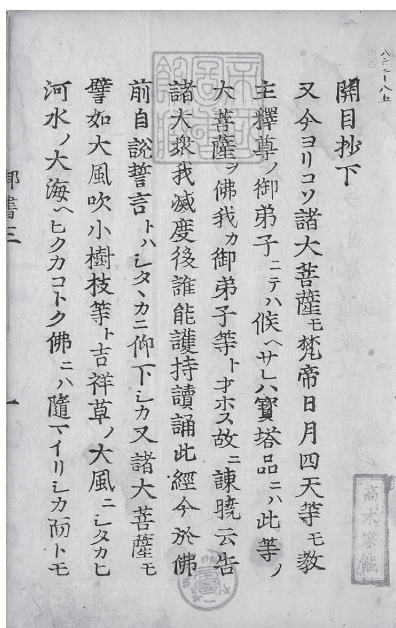 開目抄下
又今ヨリコソ諸大菩薩モ梵帝日月四天等モ教
主釋尊ノ御弟子ニテハ候ヘサレハ寳塔品ニハ此等ノ
大菩薩ヲ佛我カ御弟子等トオホス故ニ諌曉云告
諸大衆我滅度後誰能護持讀誦此經今於佛
前自説誓言トハシタヽカニ仰下シカ又諸大菩薩モ
譬如大風吹小樹枝等ト吉祥草ノ大風ニシタカヒ
河水ノ大海ヘヒクカコトク佛ニハ隨マイリシカ而トモ